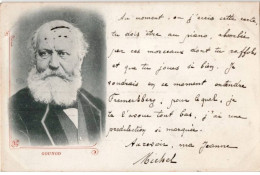 Au moment, où j'écris cette carte,
tu dois être au piano, absorbée
par ces morceaux dont tu raffoles
et que tu joues si bien. Je
voudrais en ce moment entendre
pour lequel, je
te l'avoue tout bas, j'ai une
prédilection si marquée.
Au revoir, ma Jeanne
Michel
GOUNOD